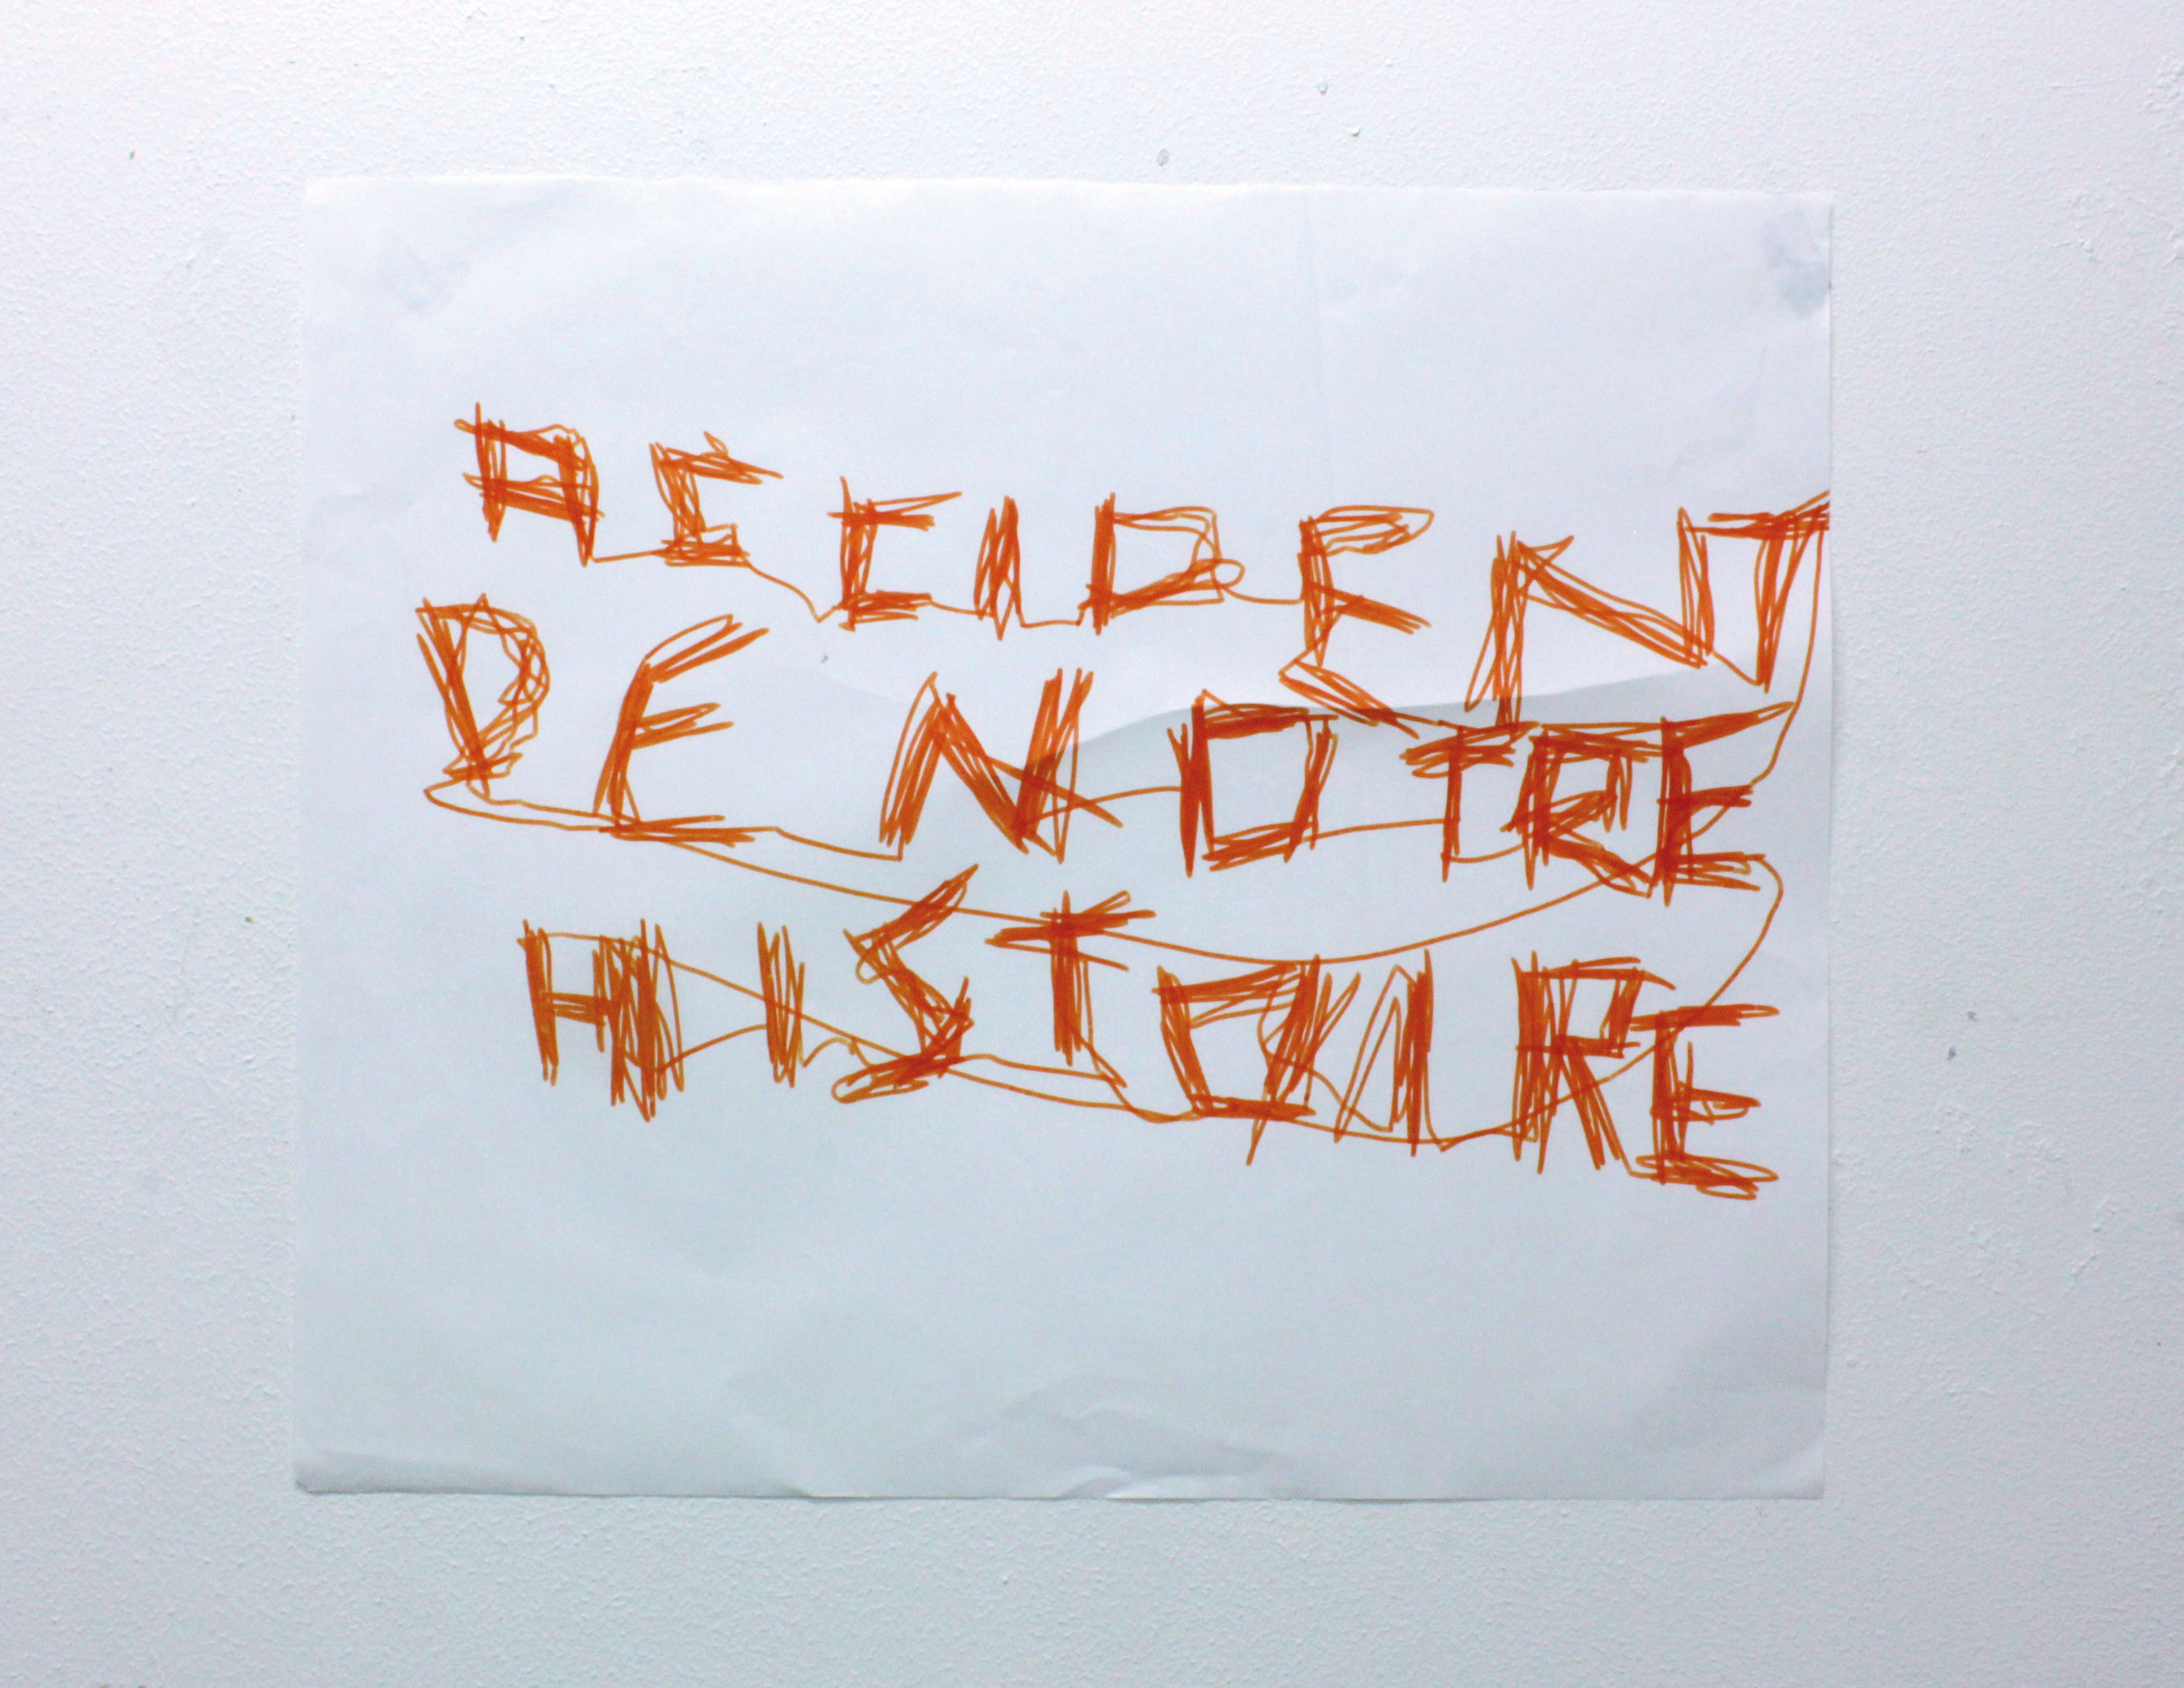 ACCIDENT
DE NOTRE
HISTOIRE